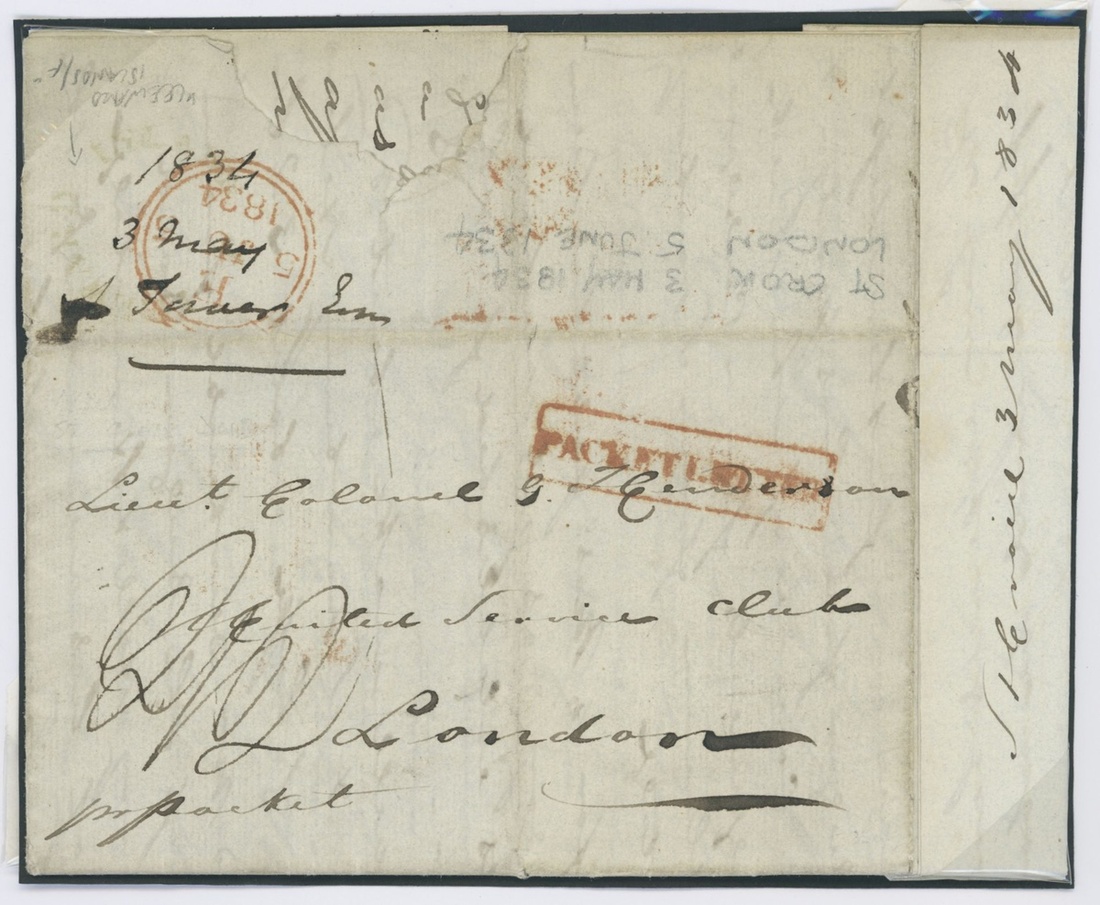 1834
3 May
Lieut. Colonel G. Henderson
United Service Club
London
pr packet
PACKET LETTER
5
1834
ST CROIX 3 MAY 1834
LONDON 5 JUNE 1834
St Croix 3 May 1834